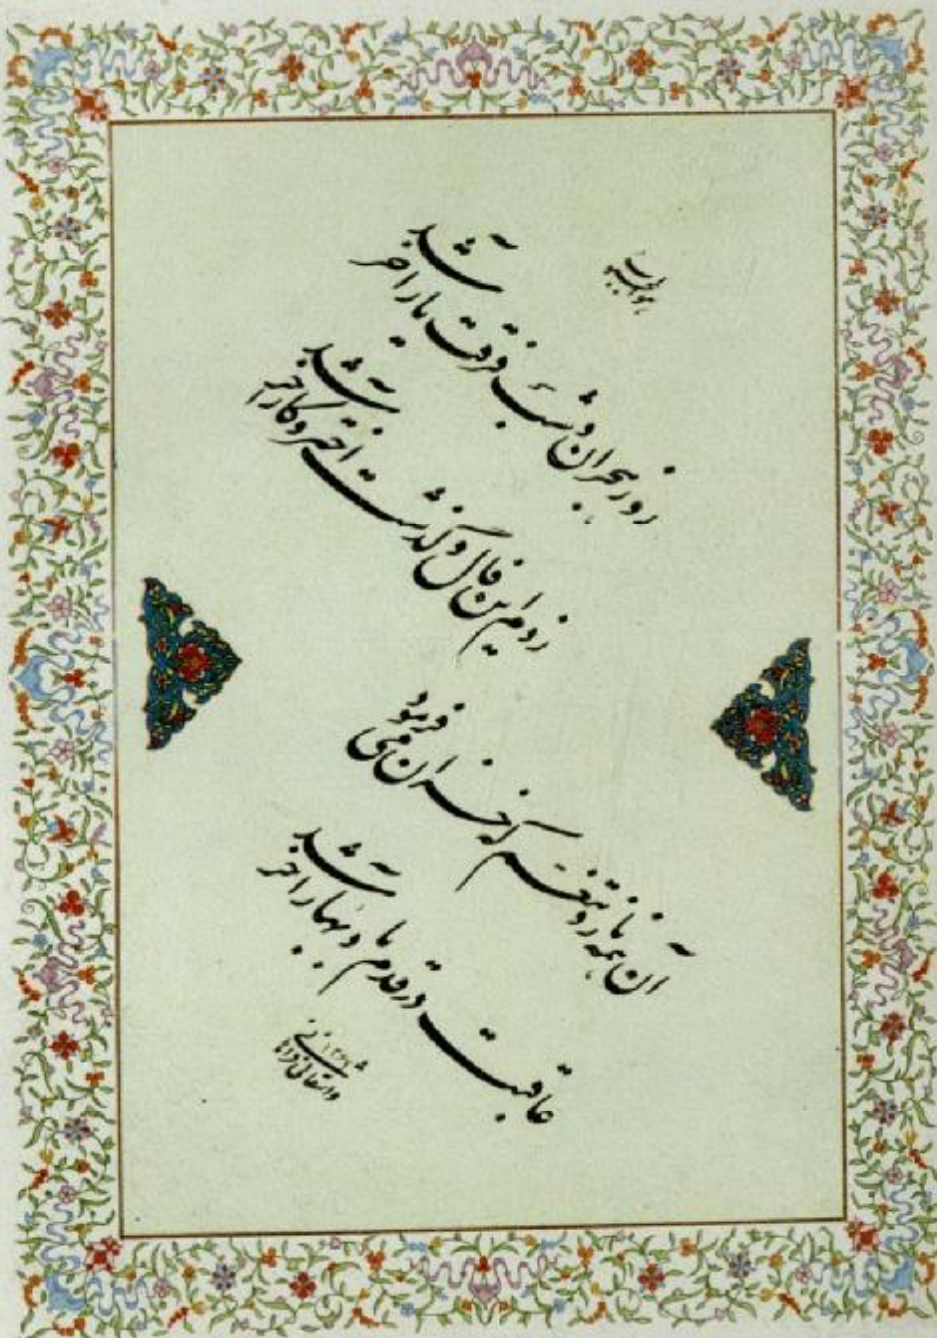 روز هجران و شب فرقت یار آخر شد
زدم این فال و گذشت اختر و کار آخر شد
آن همه ناز و تنعم که خزان می فرمود
عاقبت در قدم باد بهار آخر شد
واشقانی فراهانی